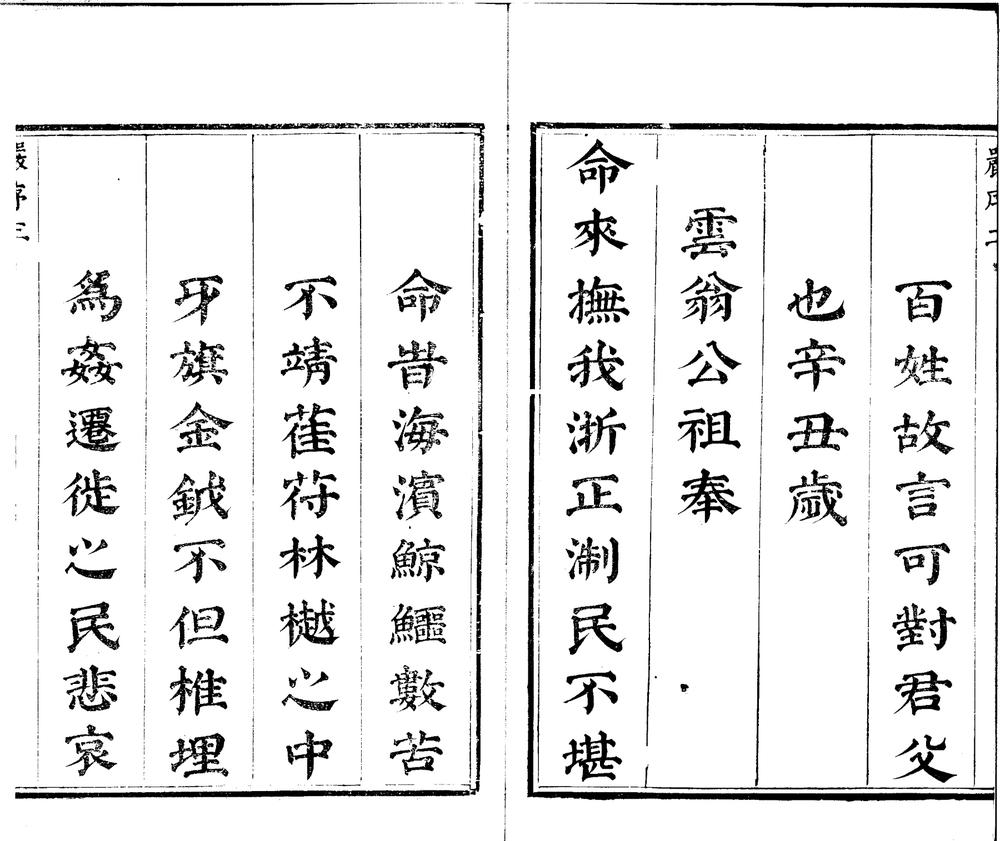 百姓故言可對君父
也辛丑歲
雲翁公祖奉
命來撫我浙正淛民不堪
命旹海濱鯨鱷數苦
不靖萑苻林樾之中
牙旗金鉞不但椎埋
爲姦遷徙之民悲哀
嚴序三